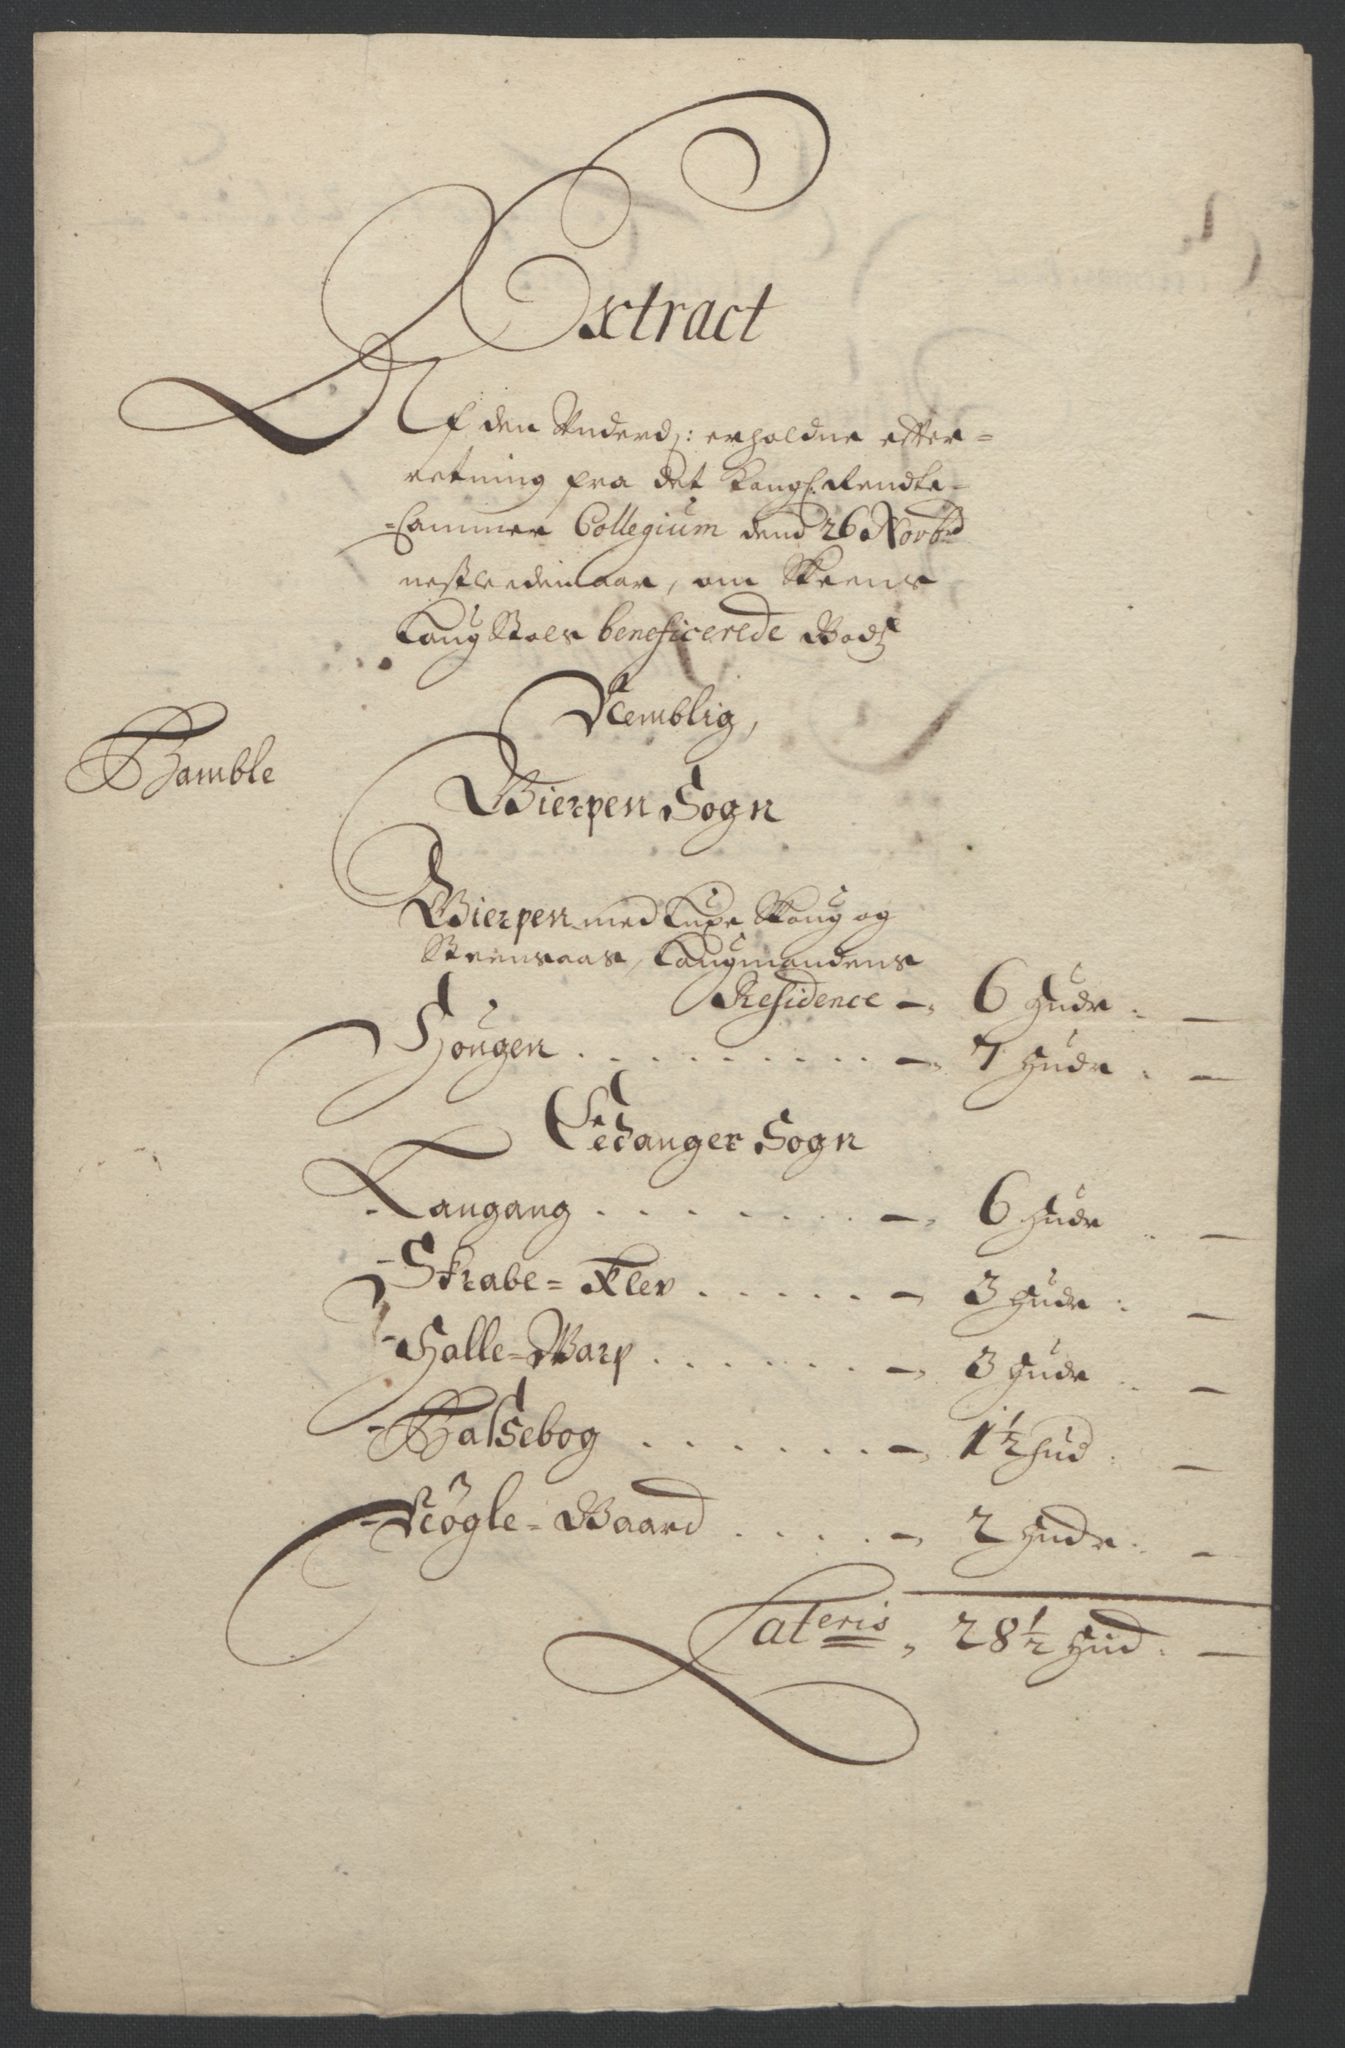 Extract
Af den Underd: erholdne effter=
retning fra det Kongl: Rendte=
=Cammer Collegium dend 26 Novbr
nestleeden aar, om Skeens
Laugstoels beneficerede Godz
Nemblig,
Bamble
Gierpen Sogn
Gierpen med Lupe Skoug og
Steensaas, Laugmandens
Residence — 6 Huder
Hougen — 7 Huder
Eedanger Sogn
Langang — 6 Huder
Skrabe=Klev — 3 Huder
Halle=Warp — 3 Huder
Balsebog — 1½ Hud
Nøgle=Gaard — 2 Huder
Lateris, 28½ Hud